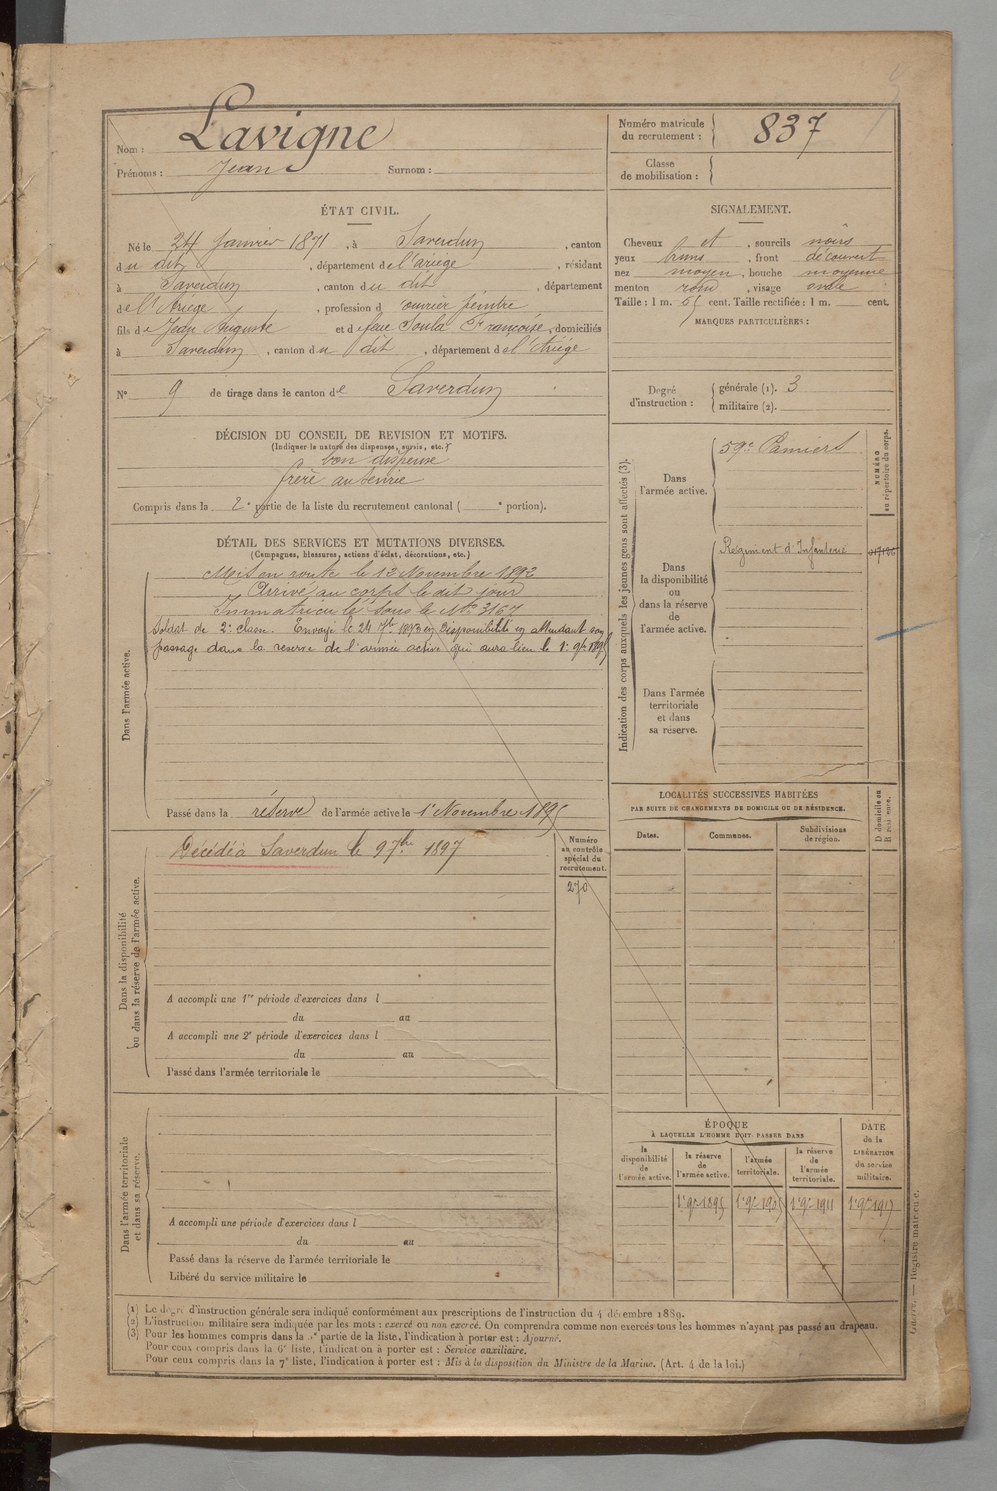 Nom : Lavigne
Prénoms : Jean Surnom :
Numéro matricule du recrutement : 837
Classe de mobilisation :
ÉTAT CIVIL.
Né le 24 Janvier 1871, à Saverdun, canton
du dit, département de l'ariège, résidant
à Saverdun, canton du dit, département
de l'Ariège, profession d ouvrier peintre
fils de Jean Auguste et de feue Soula Françoise, domiciliés
à Saverdun, canton du dit, département de l'Ariège
N° 9 de tirage dans le canton de Saverdun
SIGNALEMENT.
Cheveux et, sourcils noirs
yeux bruns, front découvert
nez moyen, bouche moyenne
menton rond, visage ovale
Taille : 1 m. 55 cent. Taille rectifiée : 1 m. cent.
MARQUES PARTICULIÈRES :
Degré d'instruction : générale (1). 3
militaire (2).
DÉCISION DU CONSEIL DE REVISION ET MOTIFS.
(Indiquer la nature des dispenses, sursis, etc.)
bon dispensé
frère au service
Compris dans la 2e partie de la liste du recrutement cantonal ( e portion).
DÉTAIL DES SERVICES ET MUTATIONS DIVERSES.
(Campagnes, blessures, actions d'éclat, décorations, etc.)
Dans l'armée active.
Mis en route le 13 Novembre 1892
Arrivé au corps le dit jour
Immatriculé sous le N° 3167
Soldat de 2e classe. Envoyé le 24 7bre 1893 en disponibilité en attendant son
passage dans la réserve de l'armée active qui aura lieu le 1er 9bre 1895
Passé dans la réserve de l'armée active le 1er Novembre 1895
Indication des corps auxquels les jeunes gens sont affectés (3).
Dans l'armée active.
59e Pamiers
NUMÉRO au répertoire du corps.
Dans la disponibilité ou dans la réserve de l'armée active.
Régiment d'Infanterie
Dans l'armée territoriale et dans sa réserve.
Dans la disponibilité ou dans la réserve de l'armée active.
Décédé à Saverdun le 9 7bre 1897
Numéro au contrôle spécial du recrutement.
270
A accompli une 1re période d'exercices dans l
du au
A accompli une 2e période d'exercices dans l
du au
Passé dans l'armée territoriale le
LOCALITÉS SUCCESSIVES HABITÉES
PAR SUITE DE CHANGEMENTS DE DOMICILE OU DE RÉSIDENCE.
Dates. Communes. Subdivisions de région. D domicile ou R résidence.
Dans l'armée territoriale et dans sa réserve.
A accompli une période d'exercices dans l
du au
Passé dans la réserve de l'armée territoriale le
Libéré du service militaire le
ÉPOQUE
À LAQUELLE L'HOMME DOIT PASSER DANS
la disponibilité de l'armée active. la réserve de l'armée active. l'armée territoriale. la réserve de l'armée territoriale. DATE de la LIBÉRATION du service militaire.
1er 9bre 1895 1er 9bre 1905 1er 9bre 1911 1er 9bre 1917
(1) Le degré d'instruction générale sera indiqué conformément aux prescriptions de l'instruction du 4 décembre 1889.
(2) L'instruction militaire sera indiquée par les mots : exercé ou non exercé. On comprendra comme non exercés tous les hommes n'ayant pas passé au drapeau.
(3) Pour les hommes compris dans la partie de la liste, l'indication à porter est : Ajourné.
Pour ceux compris dans la 6e liste, l'indication à porter est : Service auxiliaire.
Pour ceux compris dans la 7e liste, l'indication à porter est : Mis à la disposition du Ministre de la Marine. (Art. 4 de la loi.)
Guerre. — Registre matricule.